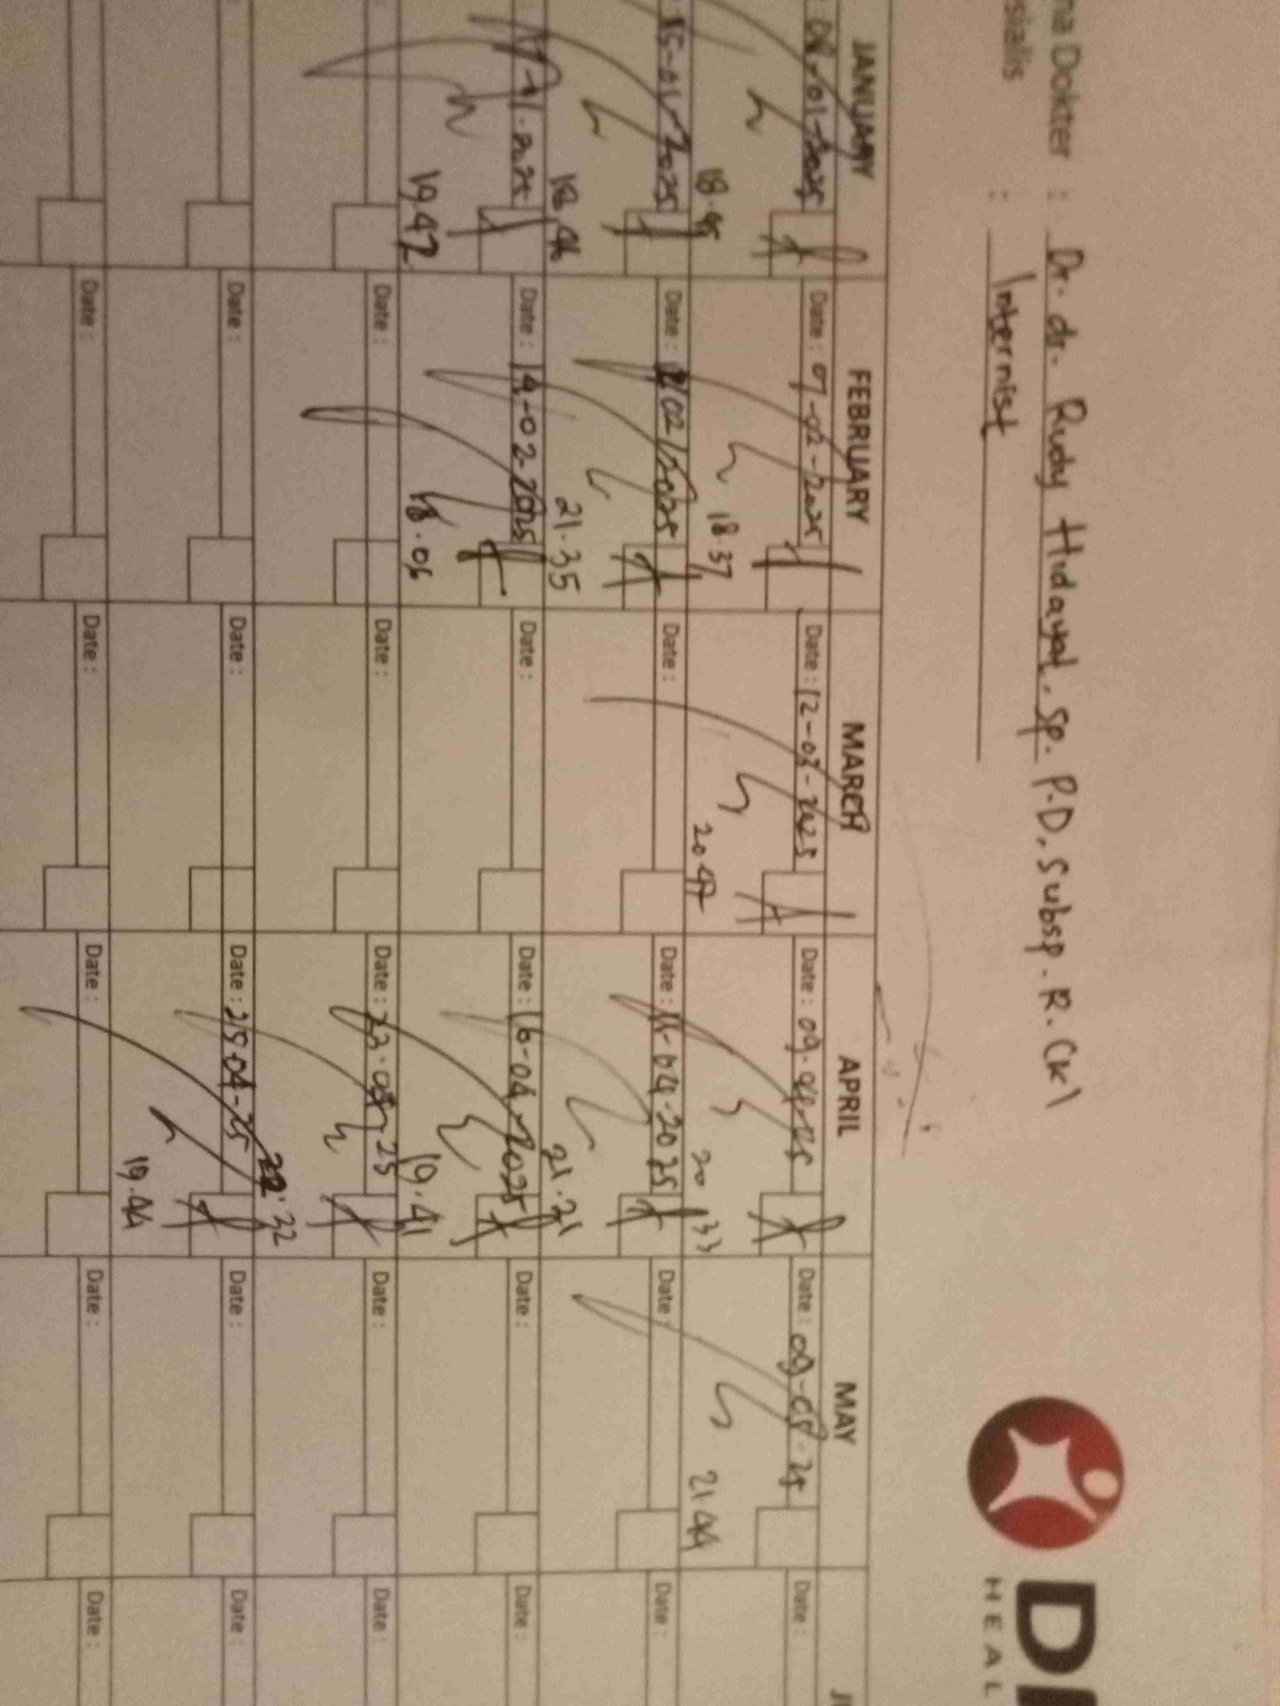 na Dokter : Dr. dr. Rudy Hidayat, Sp. P.D, Subsp. R. (K)
sialis : Internist
DI
HEAL
JANUARY FEBRUARY MARCH APRIL MAY
08-01-2025 Date : 07-02-2025 Date : 12-03-2025 Date : 09.04-25 Date : 09-05-25 Date :
18.45 18.37 20.47 20.33 21.44
15-01-2025 Date : 12/02/2025 Date : Date : 11-04-2025 Date : Date :
18.46 21.35 21.21
Date : 19-02-2025 Date : Date : 16-04-2025 Date : Date :
19.42 18.06 19.41
Date : Date : Date : 22.04.25 Date : Date :
22.32
Date : Date : Date : 25-04-25 Date : Date :
19.44
Date : Date : Date : Date : Date :